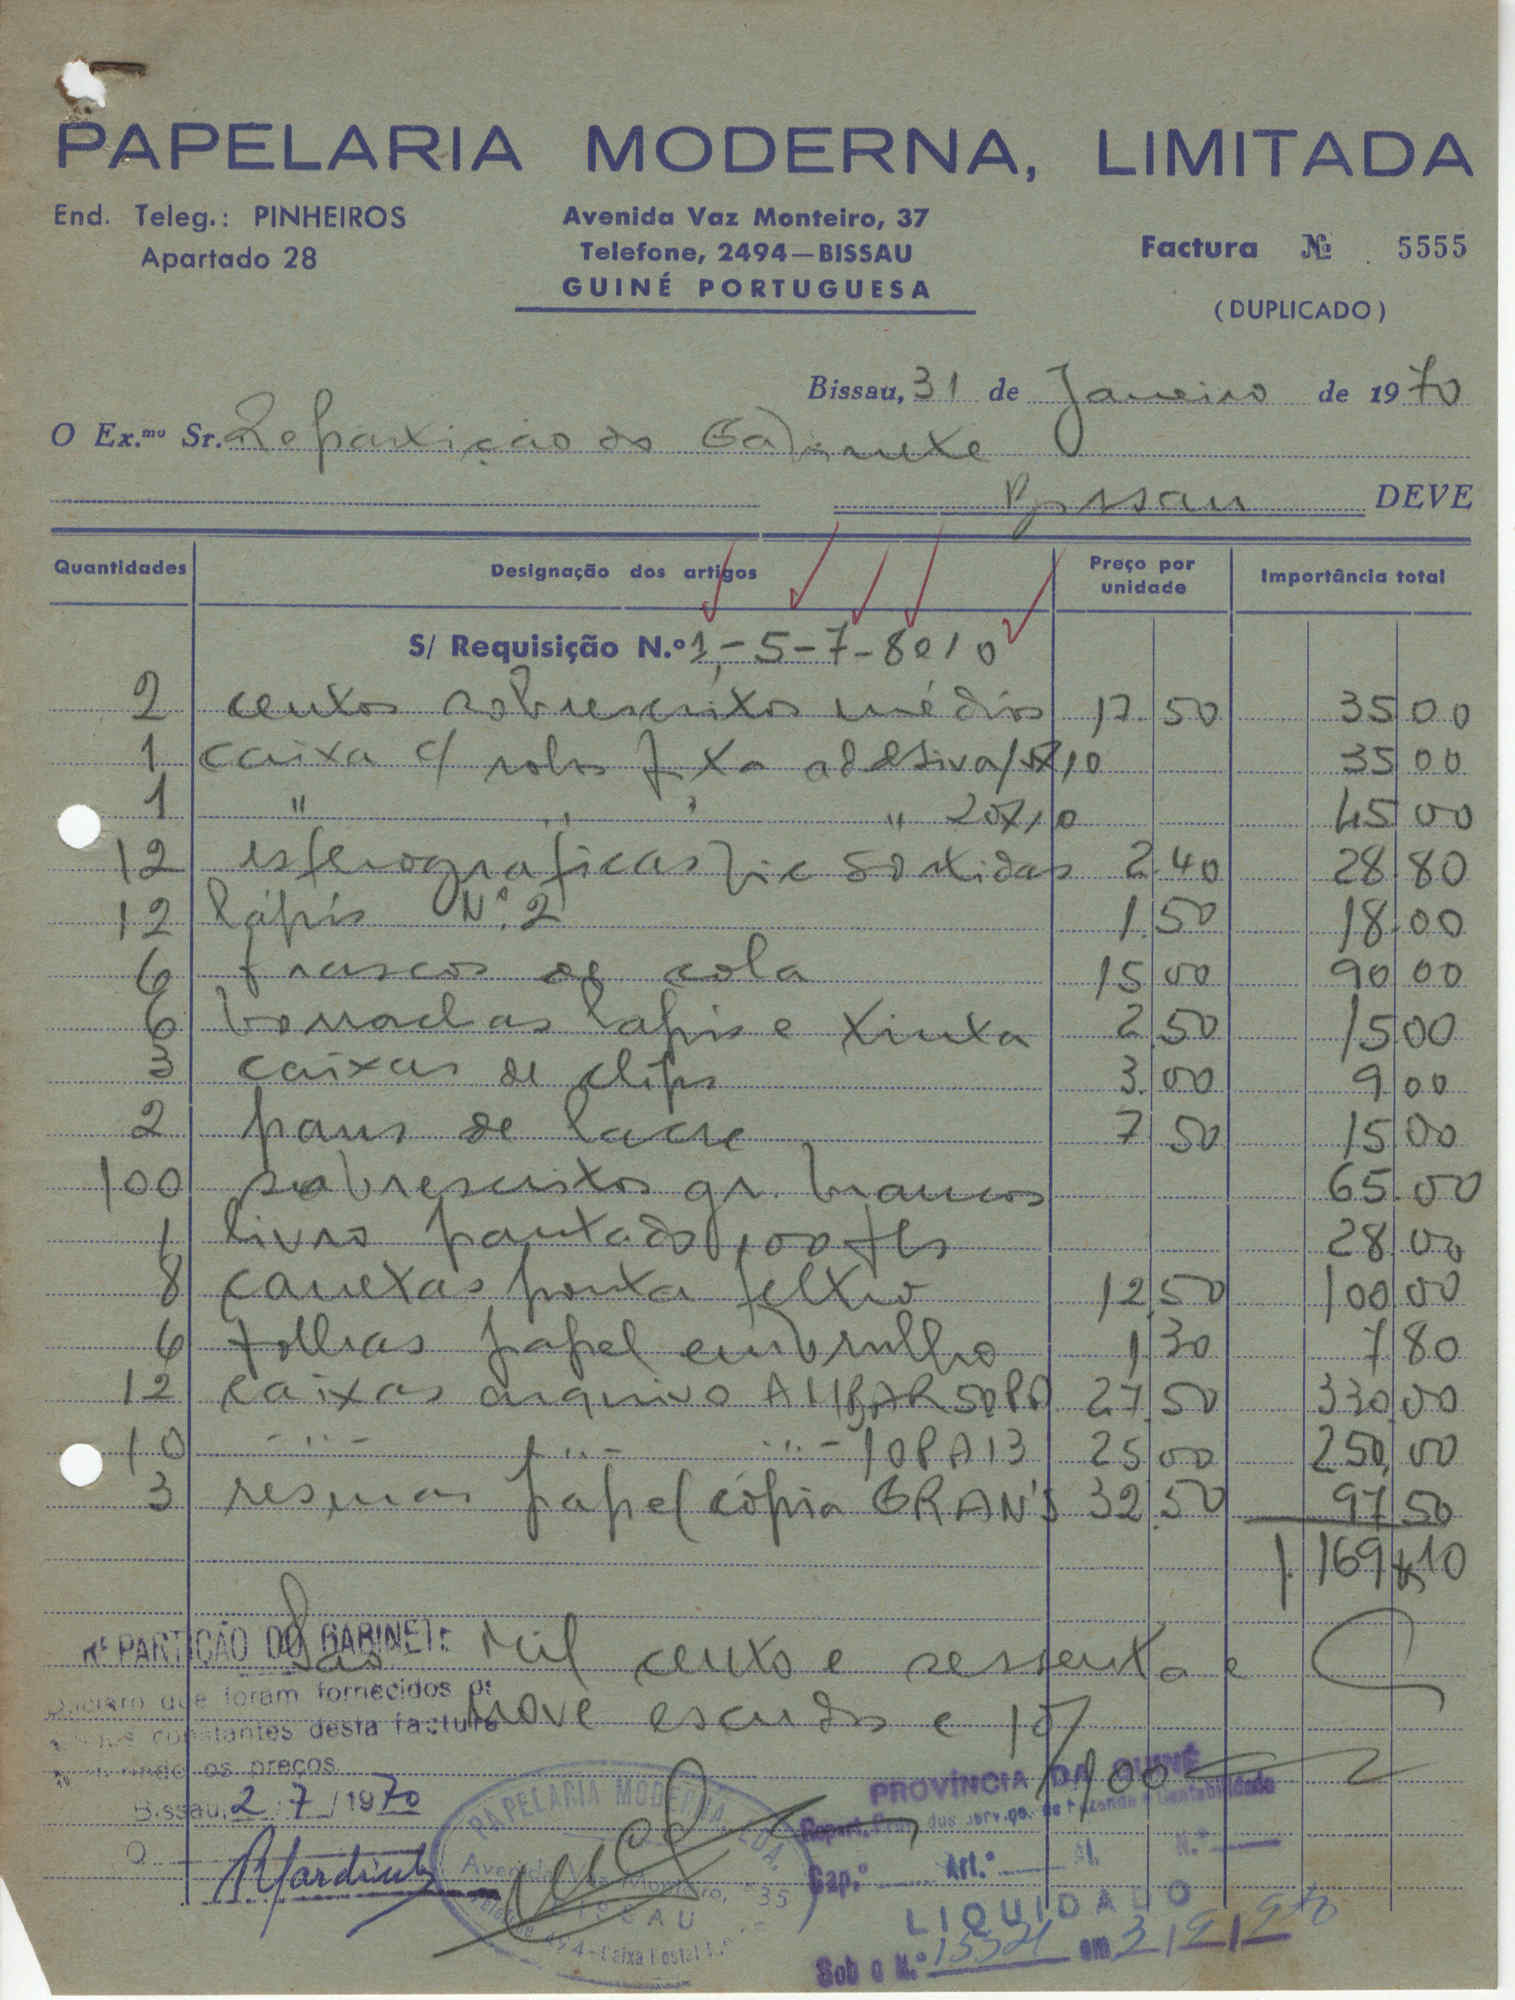 PAPELARIA MODERNA, LIMITADA
End. Teleg.: PINHEIROS
Apartado 28
Avenida Vaz Monteiro, 37
Telefone, 2494—BISSAU
GUINÉ PORTUGUESA
Factura № 5555
(DUPLICADO)
Bissau, 31 de Janeiro de 1970
O Ex.mo Sr. Repartição do Gabinete
Bissau DEVE
Quantidades Designação dos artigos Preço por unidade Importância total
S/ Requisição N.º 1,-5-7-8 e 10
2 centos sobrescritos médios 17.50 35 00
1 caixa c/ rolos fixa adesiva 35 00
1 " " " " 20x10 45 00
12 esferograficas bic sortidas 2.40 28.80
12 lápis Nº 2 1.50 18.00
6 frascos de cola 15 00 90 00
6 borrachas lapis e tinta 2.50 15 00
3 caixas de clips 3.00 9 00
2 paus de lacre 7 50 15 00
100 sobrescritos gr. brancos 65.00
1 livro pautado 100 fls 28.00
8 canetas ponta feltro 12.50 100.00
6 folhas papel embrulho 1.30 7 80
12 caixas arquivo AMBAR 50PA 27.50 330,00
10 -"- -"- -"- 10PA13 25 00 250,00
3 resmas papel cópia GRAN'S 32.50 97 50
1.169$10
São Mil cento e sessenta e
nove escudos e 10/100
REPARTIÇÃO DO GABINETE
Declaro que foram fornecidos
constantes desta factura
os preços
Bissau, 2/7/1970
O
PAPELARIA MODERNA, LDA.
Avenida Vaz Monteiro, 35
BISSAU
Caixa Postal
PROVÍNCIA DA GUINÉ
Repart. Prov. dos serviços de Fazenda e Contabilidade
Cap.º Art.º Al. N.º
LIQUIDADO
Sob o N.º em